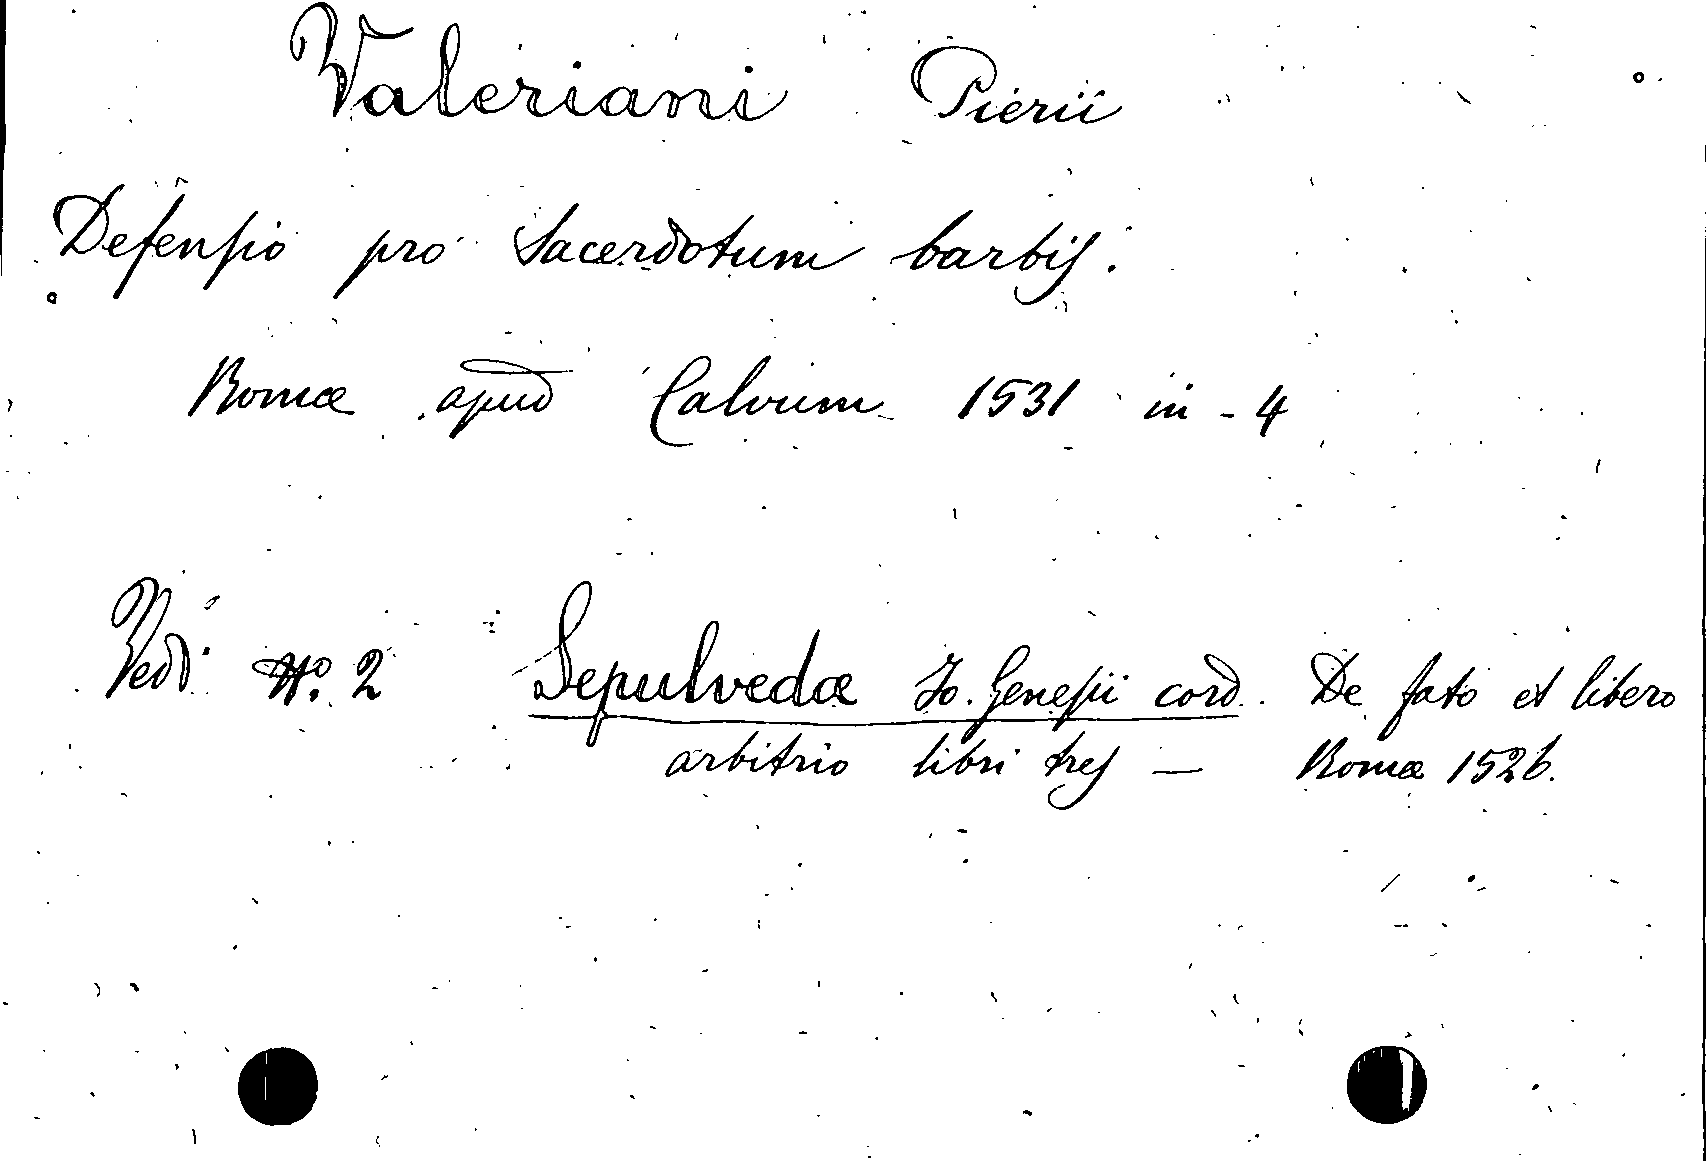 Valeriani Pierii
Defensio pro Sacerdotum barbis.
Romæ apud Calvum 1531 in-4
Vedi N.º 2 Sepulvedæ Jo. Genesii cord. De fato et libero
arbitrio libri tres — Romæ 1526.